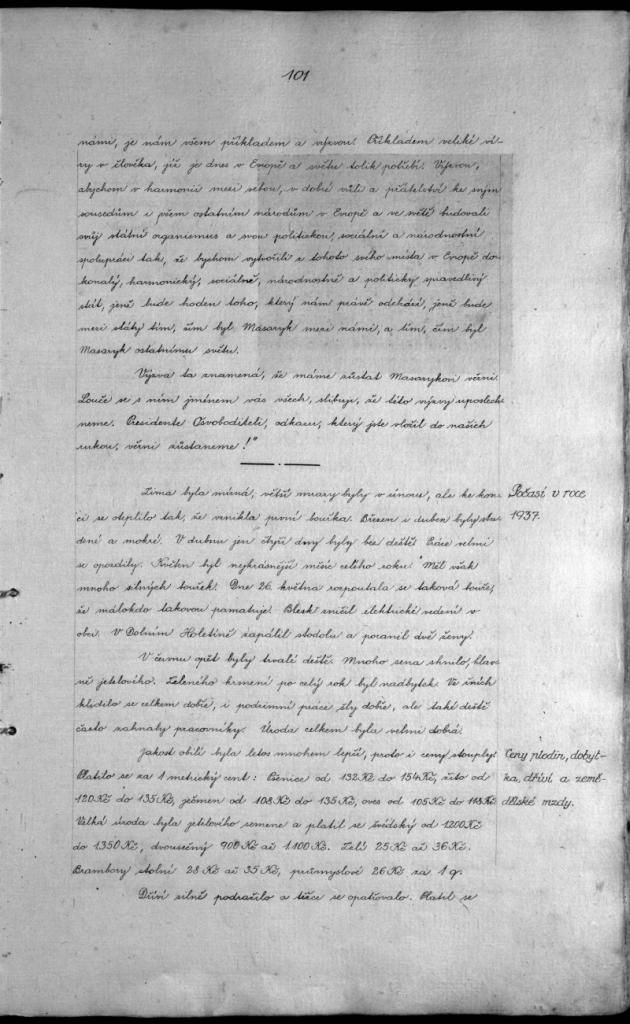 101
námi, je nám všem příkladem a výzvou. Příkladem veliké ví-
ry v člověka, jíž je dnes v Evropě a světu tolik potřebí. Výzvou,
abychom v harmonii mezi sebou, v dobré vůli a přátelství ke svým
sousedům i všem ostatním národům v Evropě a ve světě budovali
svůj státní organismus a svou politickou, sociální a národnostní
spolupráci tak, že bychom vytvořili z tohoto svého místa v Evropě do-
konalý, harmonický, sociálně, národnostně a politicky spravedlivý
stát, jenž bude hoden toho, který nám právě odchází, jenž bude
mezi státy tím, čím byl Masaryk mezi námi, a tím, čím byl
Masaryk ostatnímu světu.
Výzva ta znamená, že máme zůstat Masarykovi věrni.
Louče se s ním jménem vás všech, slibuji, že této výzvy uposlech-
neme. Presidente Osvoboditeli, odkazu, který jste vložil do našich
rukou, věrni zůstaneme!"
Počasí v roce
1937.
Zima byla mírná, větší mrazy byly v únoru, ale ke kon-
ci se oteplilo tak, že vznikla první bouřka. Březen i duben byly stu-
dené a mokré. V dubnu jen čtyři dny byly bez deště. Práce velmi
se opozdily. Květen byl nejkrásnější měsíc celého roku. Měl však
mnoho silných bouřek. Dne 26. května rozpoutala se taková bouře,
že málokdo takovou pamatuje. Blesk zničil elektrické vedení v
obci. V Dolním Holetíně zapálil stodolu a poranil dvě ženy.
V červnu opět byly trvalé deště. Mnoho sena shnilo, hlav-
ně jetelového. Zeleného krmení po celý rok byl nadbytek. Ve žních
klidilo se celkem dobře, i podzimní práce šly dobře, ale také deště
často zahnaly pracovníky. Úroda celkem byla velmi dobrá.
Ceny plodin, dobyt-
ka, dříví a země-
dělské mzdy.
Jakost obilí byla letos mnohem lepší, proto i ceny stouply.
Platilo se za 1 metrický cent: Pšenice od 132 Kč do 154 Kč, žito od
120 Kč do 135 Kč, ječmen od 108 Kč do 135 Kč, oves od 105 Kč do 118 Kč
Velká úroda byla jetelového semene a platil se švédský od 1200 Kč
do 1350 Kč, dvousečný 900 Kč až 1100 Kč. Zelí 25 Kč až 36 Kč.
Brambory stolní 28 Kč až 35 Kč, průmyslové 26 Kč za 1 q.
Dříví silně podražilo a těžce se opatřovalo. Platil se